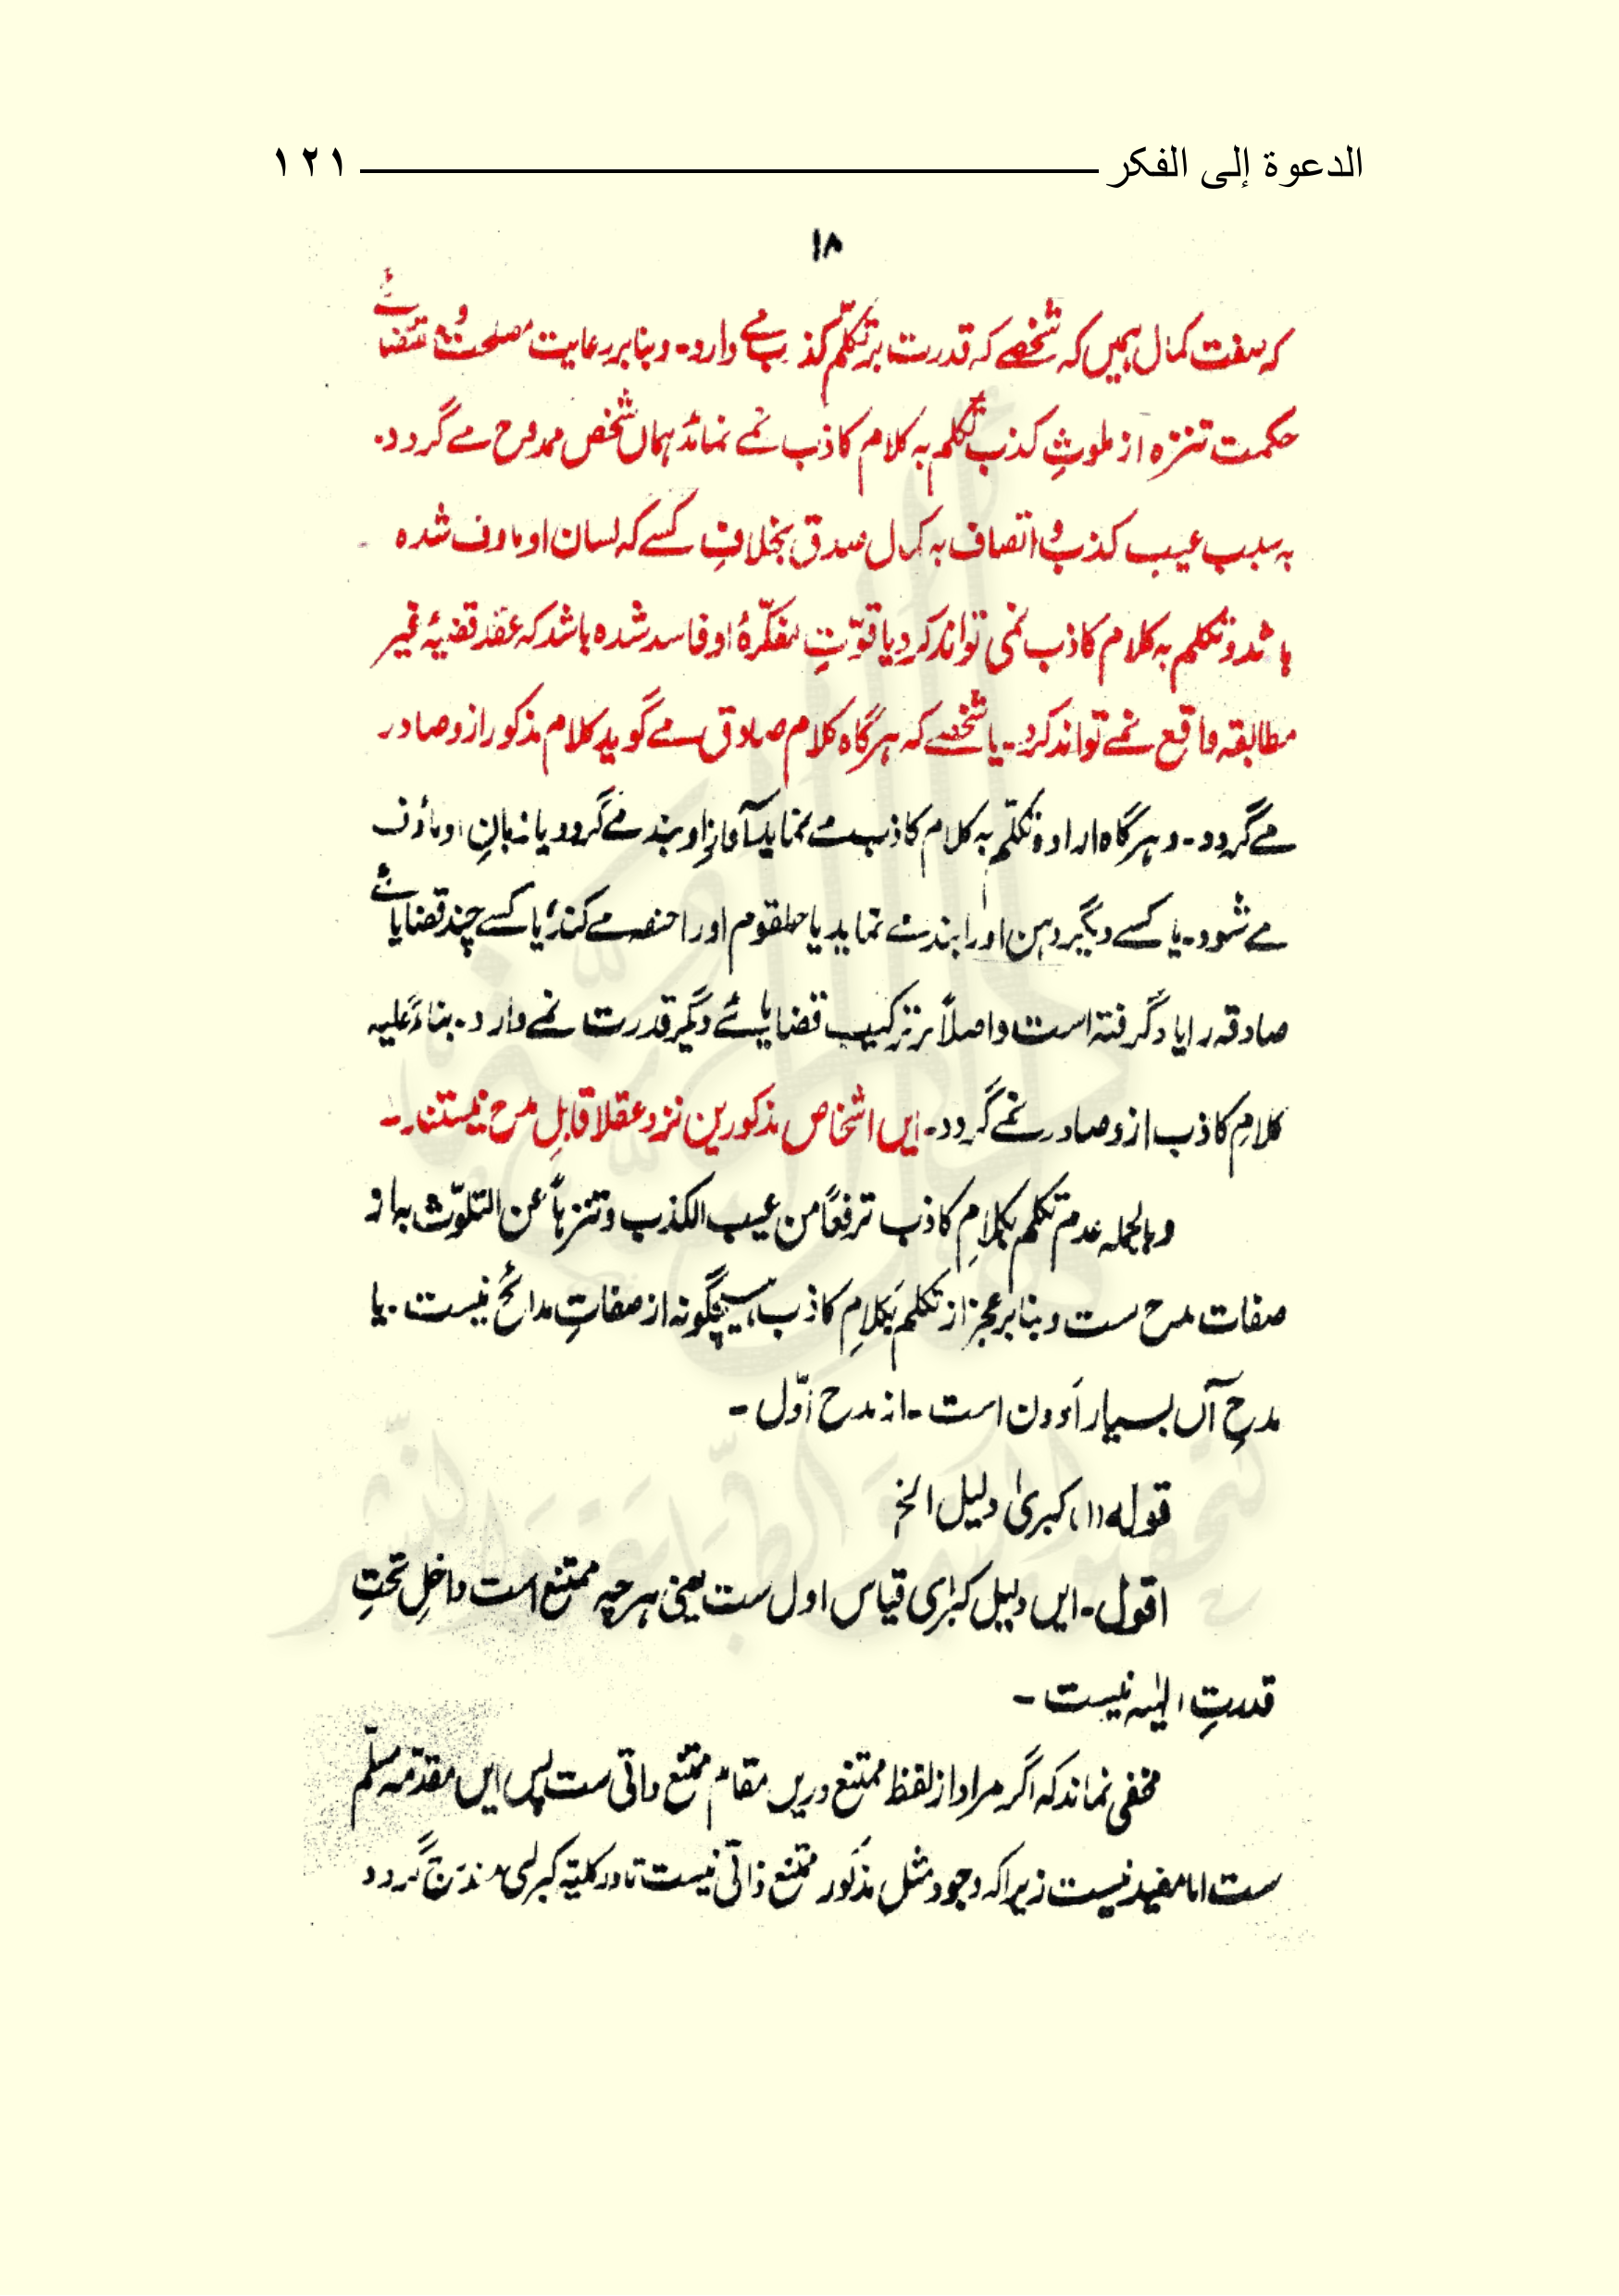 الدعوة إلى الفكر ١٢١
١٨
کہ صفت کمال ہمیں کہ شخصے کہ قدرت بر تکلّم کذب مے دارد۔ و بنا بر رعایت مصلحت و مقتضائے
حکمت تنزہ از ملوثِ کذب تکلم بہ کلام کاذب نمے نماند ہماں شخص ممدوح مے گردد۔
بہ سبب عیب کذب و اتصاف بہ کمال صدق بخلافِ کسے کہ لسان او ماوف شدہ
باشد و تکلم بہ کلام کاذب نمی تواند کرد یا قوّتِ مفکّرۂ او فاسد شدہ باشد کہ عقد قضیۂ غیر
مطابقہ واقع نمے تواند کرد۔ یا شخصے کہ ہر گاہ کلام صادق مے گوید کلام مذکور ازو صادر
مے گردد۔ و ہر گاہ ارادۂ تکلّم بہ کلام کاذب مے نماید آوازِ او بند مے گردد یا زبانِ او ماؤف
مے شود۔ یا کسے دیگر دہن او را بند مے نماید یا حلقوم او را خفہ مے کند، یا کسے چند قضایائے
صادقہ را یاد گرفتہ است و اصلاً بر ترکیب قضایائے دیگر قدرت نمے دارد۔ بناءً علیہ
کلامِ کاذب ازو صادر نمے گردد۔ ایں اشخاص مذکورین نزد عقلا قابلِ مدح نیستند۔
و بالجملہ عدم تکلم بکلامِ کاذب ترفعاً من عیب الکذب و تنزہاً عن التلوّث بہ از
صفات مدح ست و بنا بر عجز از تکلم بکلامِ کاذب، ہیچگونہ از صفاتِ مدائح نیست۔ یا
مدحِ آں بسیار اَدون است۔ از مدح اوّل۔
قولہ (۱)، کبریٰ دلیل الخ
اقول۔ ایں دلیل کبرٰی قیاس اول ست یعنی ہر چہ ممتنع است داخلِ تحتِ
قدرتِ الہٰیہ نیست۔
مخفی نماند کہ اگر مراد از لفظ ممتنع دریں مقام ممتنع ذاتی ست پس ایں مقدّمہ مسلّم
ست اما مفید نیست زیرا کہ وجود مثل مذکور ممتنع ذاتی نیست تا در کلیتہ کبرٰی مندرج گردد